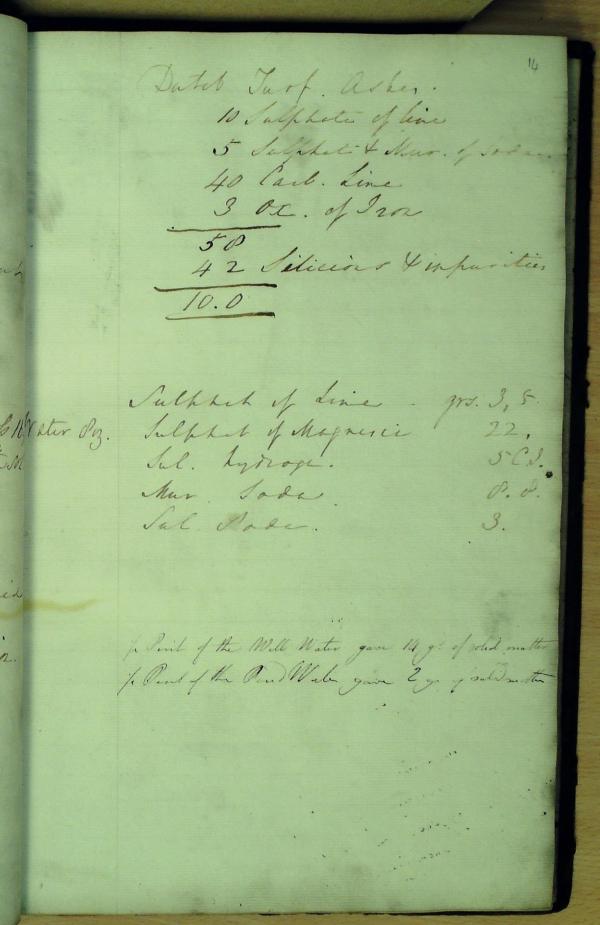 14
Dutch Turf. Ashes.
10 Sulphate of lime
5 Sulphat & Mur. of Soda
40 Carb. Lime
3 Ox. of Iron
58
42 Silicious & impurities
10.0
Sulphat of Lime - grs. 3,5
Water Sulphat of Magnesia 22,
Sul. hydroge. 5 C.I.
Mur Soda 8.8.
Sul Soda. 3.
Pint of the Well Water gave 14 gs of solid matter
Pint of the Pond Water gave 2 gs of solid matter